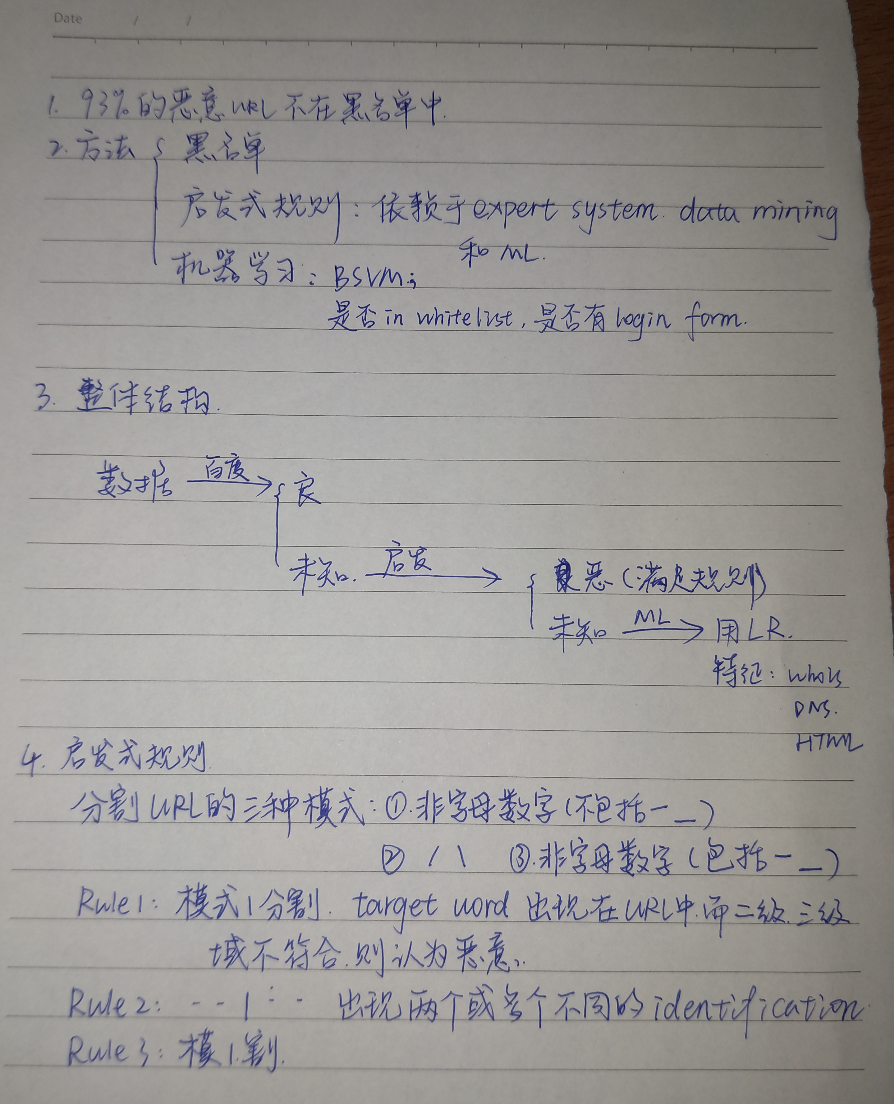 Date / /
1. 93%的恶意URL不在黑名单中.
2. 方法 { 黑名单
启发式规则: 依赖于expert system. data mining
和ML.
机器学习: BSVM;
是否in whitelist, 是否有login form.
3. 整体结构.
数据 百度→ { 良
未知. 启发→ { 恶(满足规则)
未知 ML→ 用LR.
特征: whois
DNS.
HTML
4. 启发式规则.
分割URL的三种模式: ①.非字母数字(不包括-_)
② / \ ③.非字母数字(包括-_)
Rule1: 模式1分割. target word 出现在URL中.而二级.三级
域不符合.则认为恶意.
Rule2: --1-- 出现两个或多个不同的identification.
Rule3: 模1.割.